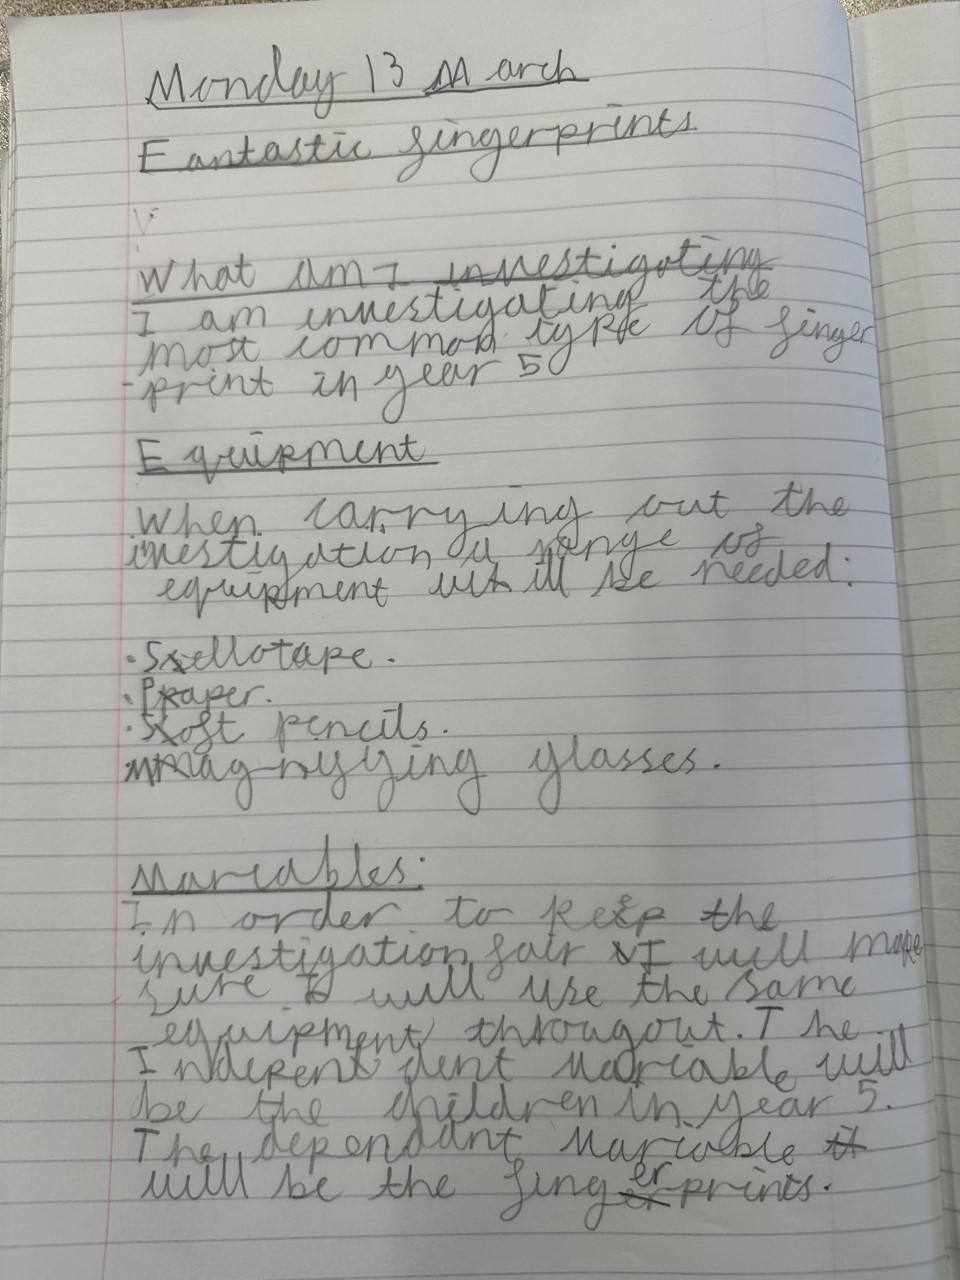 Monday 13 March
Fantastic fingerprints
What am I investigating
I am investigating the
most common type of finger
-print in year 5
Equipment
When carrying out the
investigation a range of
equipment will be needed:
• Sellotape.
• Paper.
• Soft pencils.
Magnyying glasses.
Variables:
In order to keep the
investigation fair I will make
sure I will use the same
equipment througout. The
Independent variable will
be the children in year 5.
The dependant variable
will be the fingerprints.